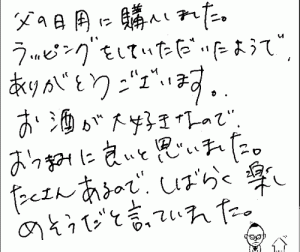 父の日用に購入しました。
ラッピングをしていただいたようで、
ありがとうございます。
お酒が大好きなので、
おつまみに良いと思いました。
たくさんあるので、しばらく楽し
めそうだと言っていました。